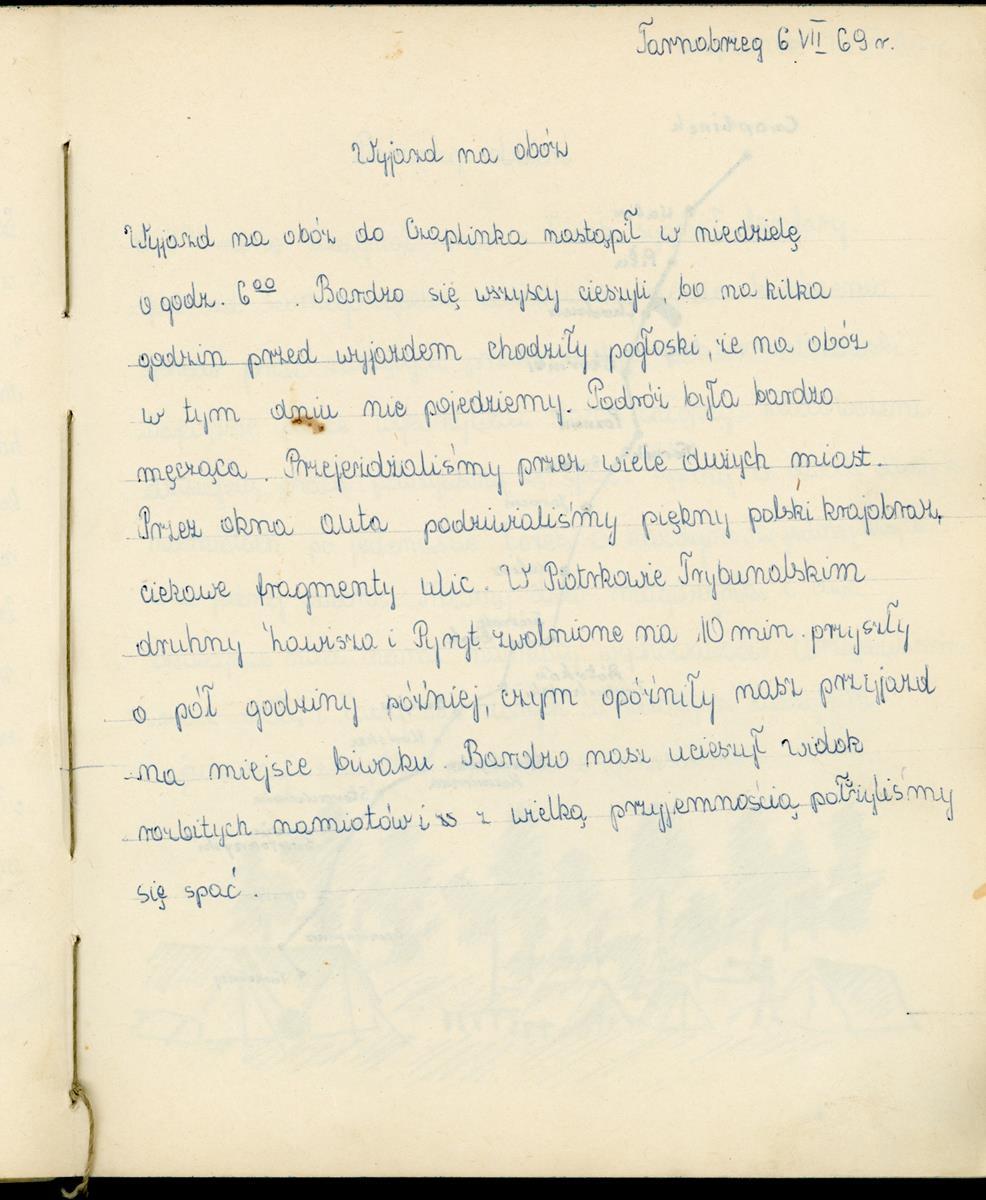 Tarnobrzeg 6 VII 69 r.
Wyjazd na obóz
Wyjazd na obóz do Czaplinka nastąpił w niedzielę
o godz. 6⁰⁰. Bardzo się wszyscy cieszyli, bo na kilka
godzin przed wyjazdem chodziły pogłoski, że na obóz
w tym dniu nie pojedziemy. Podróż była bardzo
męcząca. Przejeżdżaliśmy przez wiele dużych miast.
Przez okna auta podziwialiśmy piękny polski krajobraz,
ciekawe fragmenty ulic. W Piotrkowie Trybunalskim
druhny Zawisza i Pyryt, zwolnione na 10 min. przyszły
o pół godziny później, czym opóźniły nasz przyjazd
na miejsce biwaku. Bardzo nasz ucieszył widok
rozbitych namiotów i z wielką przyjemnością położyliśmy
się spać.